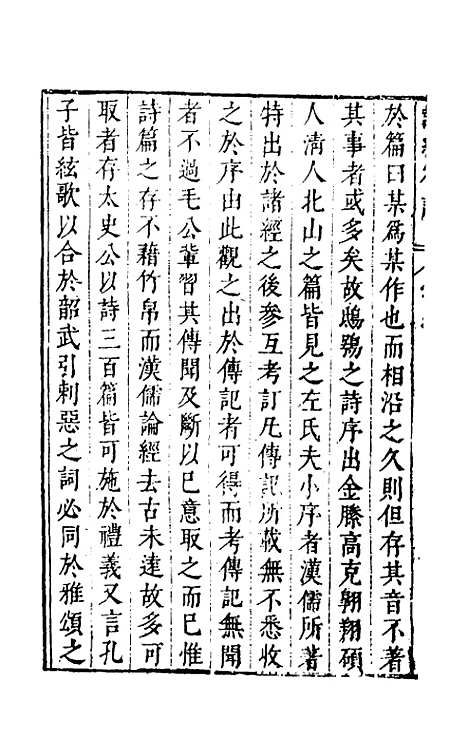 於篇曰某爲某作也而相沿之久則但存其音不著
其事者或多矣故鴟鴞之詩序出金縢高克翱翔碩
人淸人北山之篇皆見之左氏夫小序者漢儒所著
特出於諸經之後參互考訂凡傳記所載無不悉收
之於序由此觀之出於傳記者可得而考傳記無聞
者不過毛公輩習其傳聞及斷以巳意取之而巳惟
詩篇之存不藉竹帛而漢儒論經去古未遠故多可
取者存太史公以詩三百篇皆可施於禮義又言孔
子皆絃歌以合於韶武引刺惡之詞必同於雅頌之